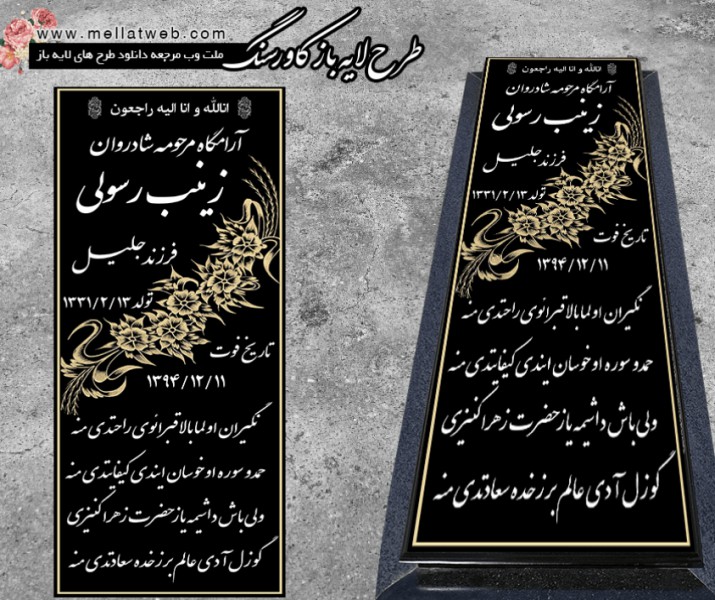 www.mellatweb.com
ملت وب مرجعه دانلود طرح های لایه باز
طرح لایه باز کاور سنگ
انالله و انا الیه راجعون
آرامگاه مرحومه شادروان
زینب رسولی
فرزند جلیل
تولد ۱۳۳۱/۲/۱۳
تاریخ فوت
۱۳۹۴/۱۲/۱۱
نگیران اولما بالا قبر ائوی راحتدی منه
حمد و سوره اوخوسان ایندی کیفایتدی منه
ولی باش داشیمه یاز حضرت زهرا کنیزی
گوزل آدی عالم برزخده سعادتدی منه
انالله و انا الیه راجعون
آرامگاه مرحومه شادروان
زینب رسولی
فرزند جلیل
تولد ۱۳۳۱/۲/۱۳
تاریخ فوت
۱۳۹۴/۱۲/۱۱
نگیران اولما بالا قبر ائوی راحتدی منه
حمد و سوره اوخوسان ایندی کیفایتدی منه
ولی باش داشیمه یاز حضرت زهرا کنیزی
گوزل آدی عالم برزخده سعادتدی منه